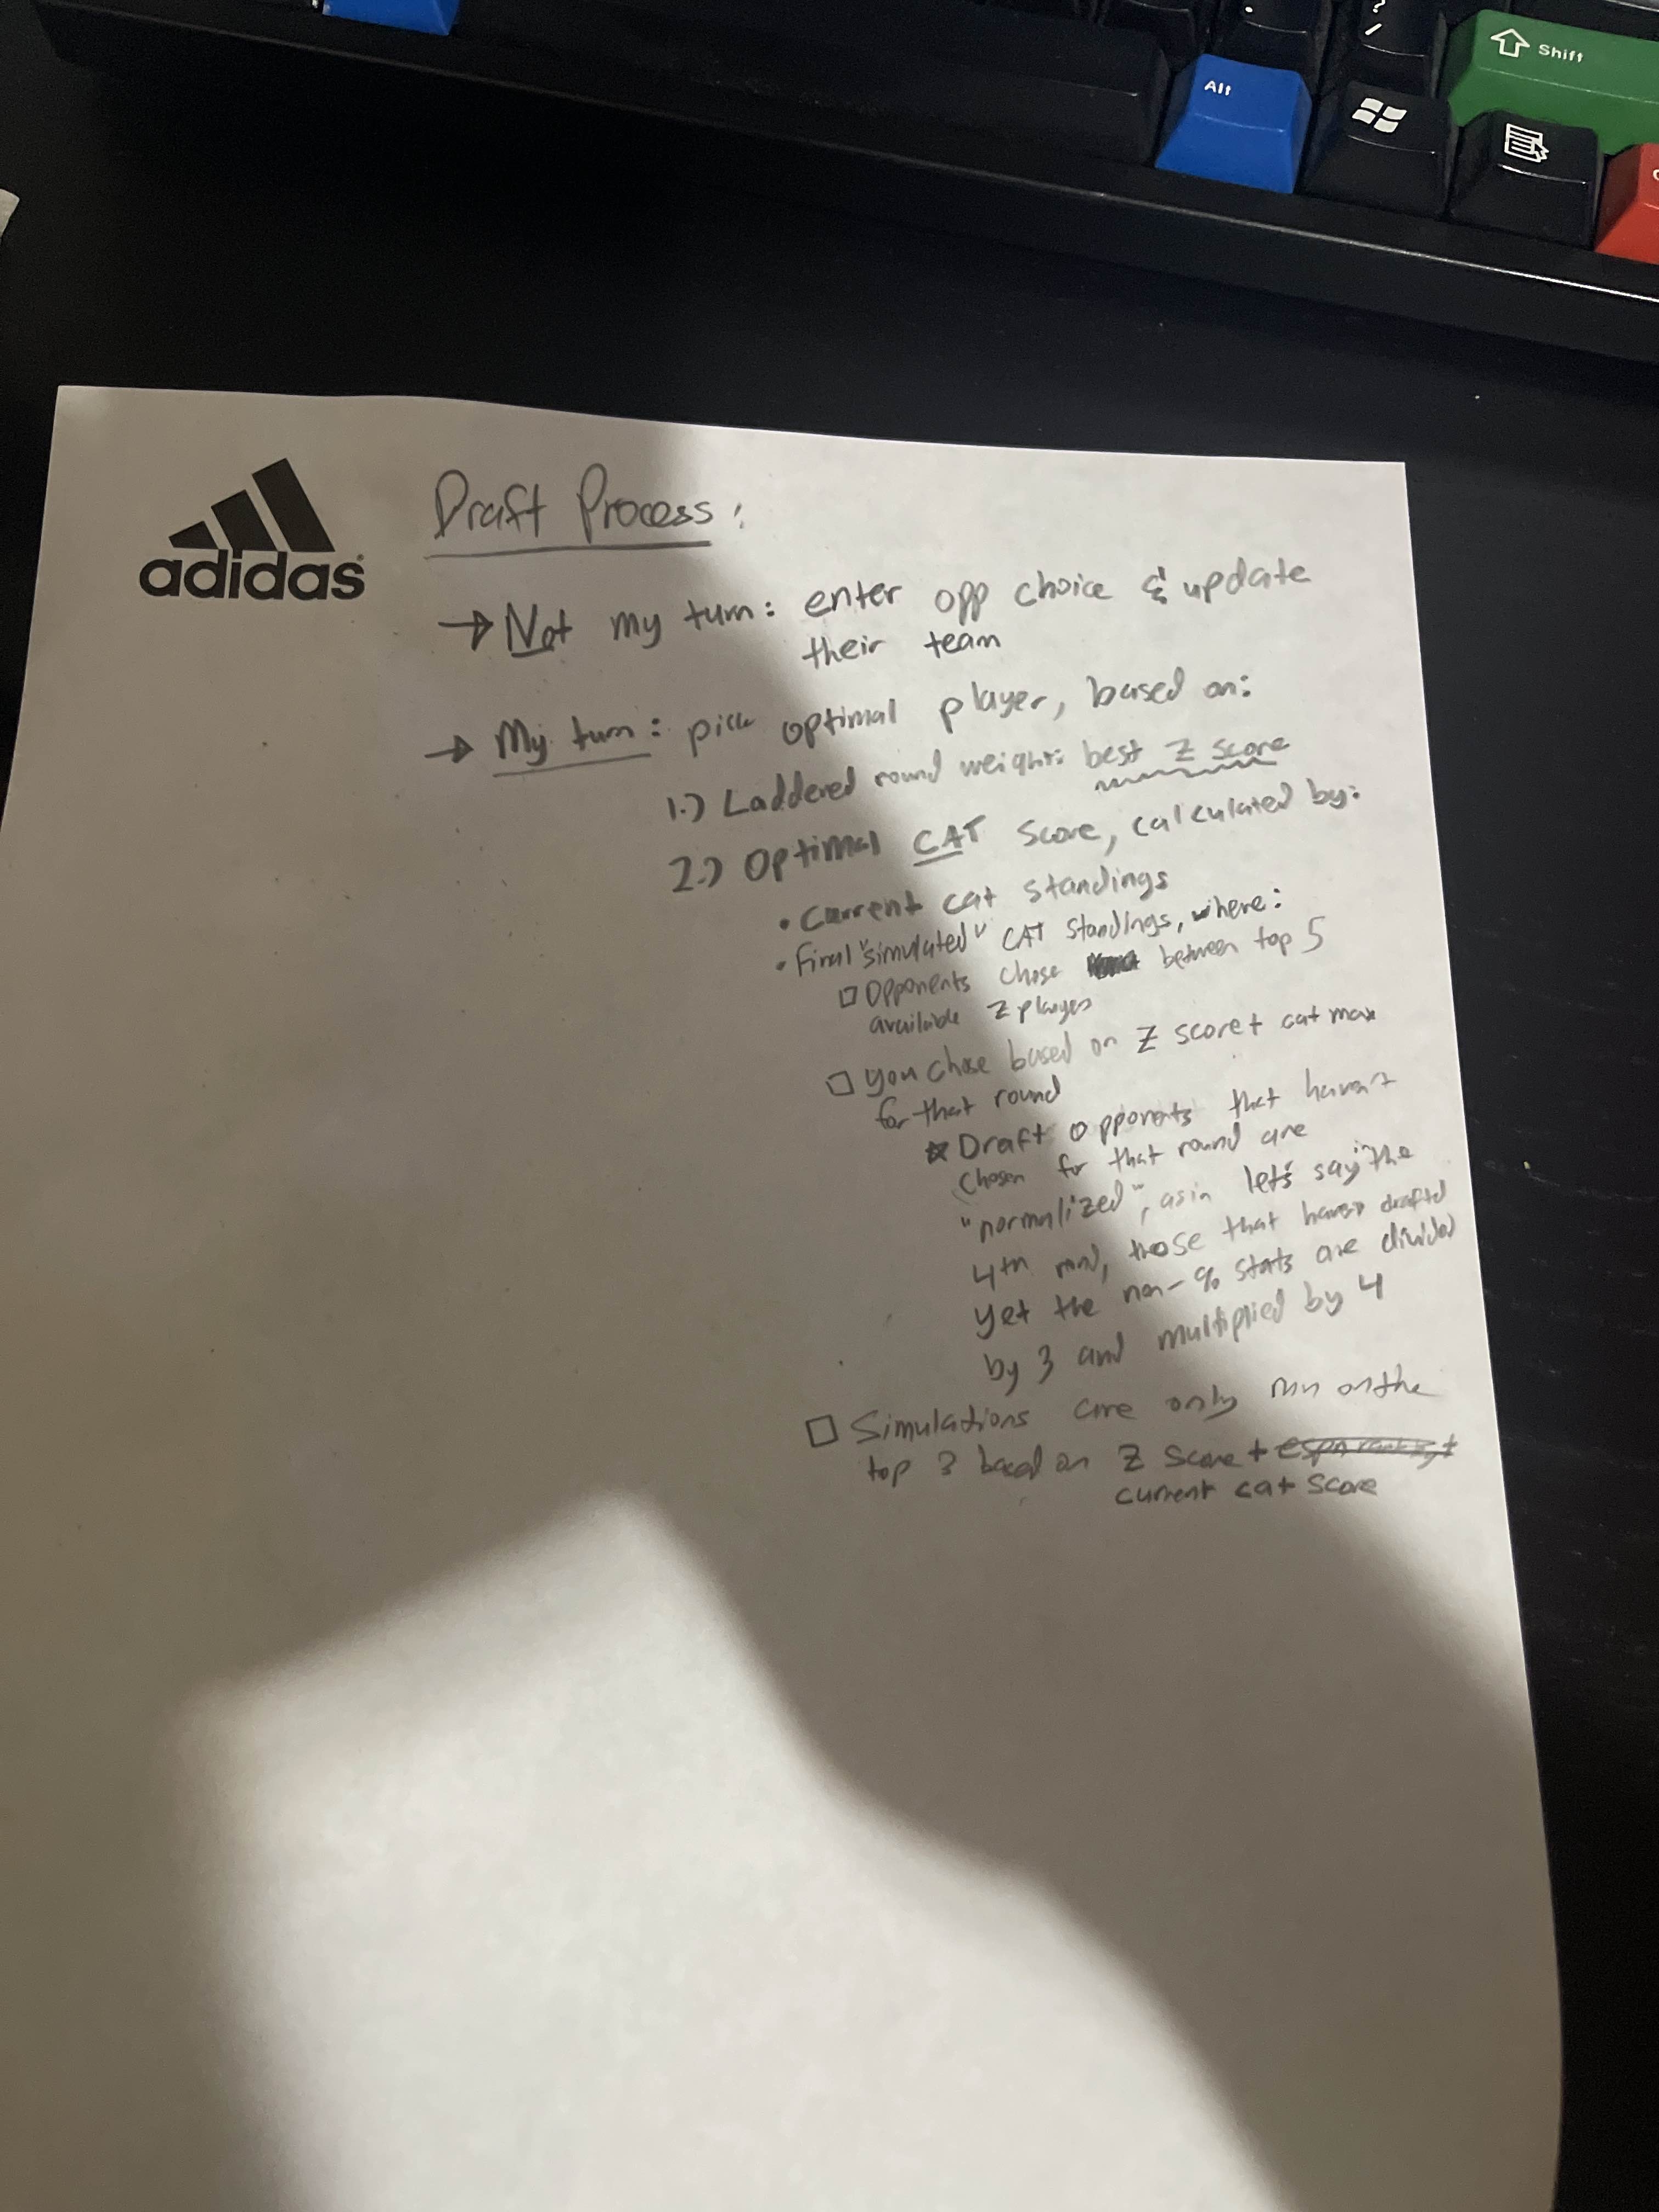 Alt
Shift
?
/
adidas
Draft Process:
→ Not my turn: enter opp choice & update
their team
→ My turn: pick optimal player, based on:
1.) Laddered round weight: best Z score
2.) Optimal CAT score, calculated by:
• Current cat standings
• Final "simulated" CAT standings, where:
□ Opponents chose between top 5
available Z players
□ You chose based on Z score + cat max
for that round
☆ Draft opponents that haven't
chosen for that round are
"normalized", as in let's say in the
4th rnd, those that haven't drafted
yet the non-% stats are divided
by 3 and multiplied by 4
□ Simulations are only run on the
top 3 based on Z score + espn ranking +
current cat score